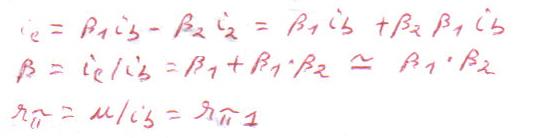 ic = β1 ib - β2 i2 = β1 ib + β2 β1 ib
β = ic/ib = β1 + β1·β2 ≃ β1·β2
rπ = u/ib = rπ1